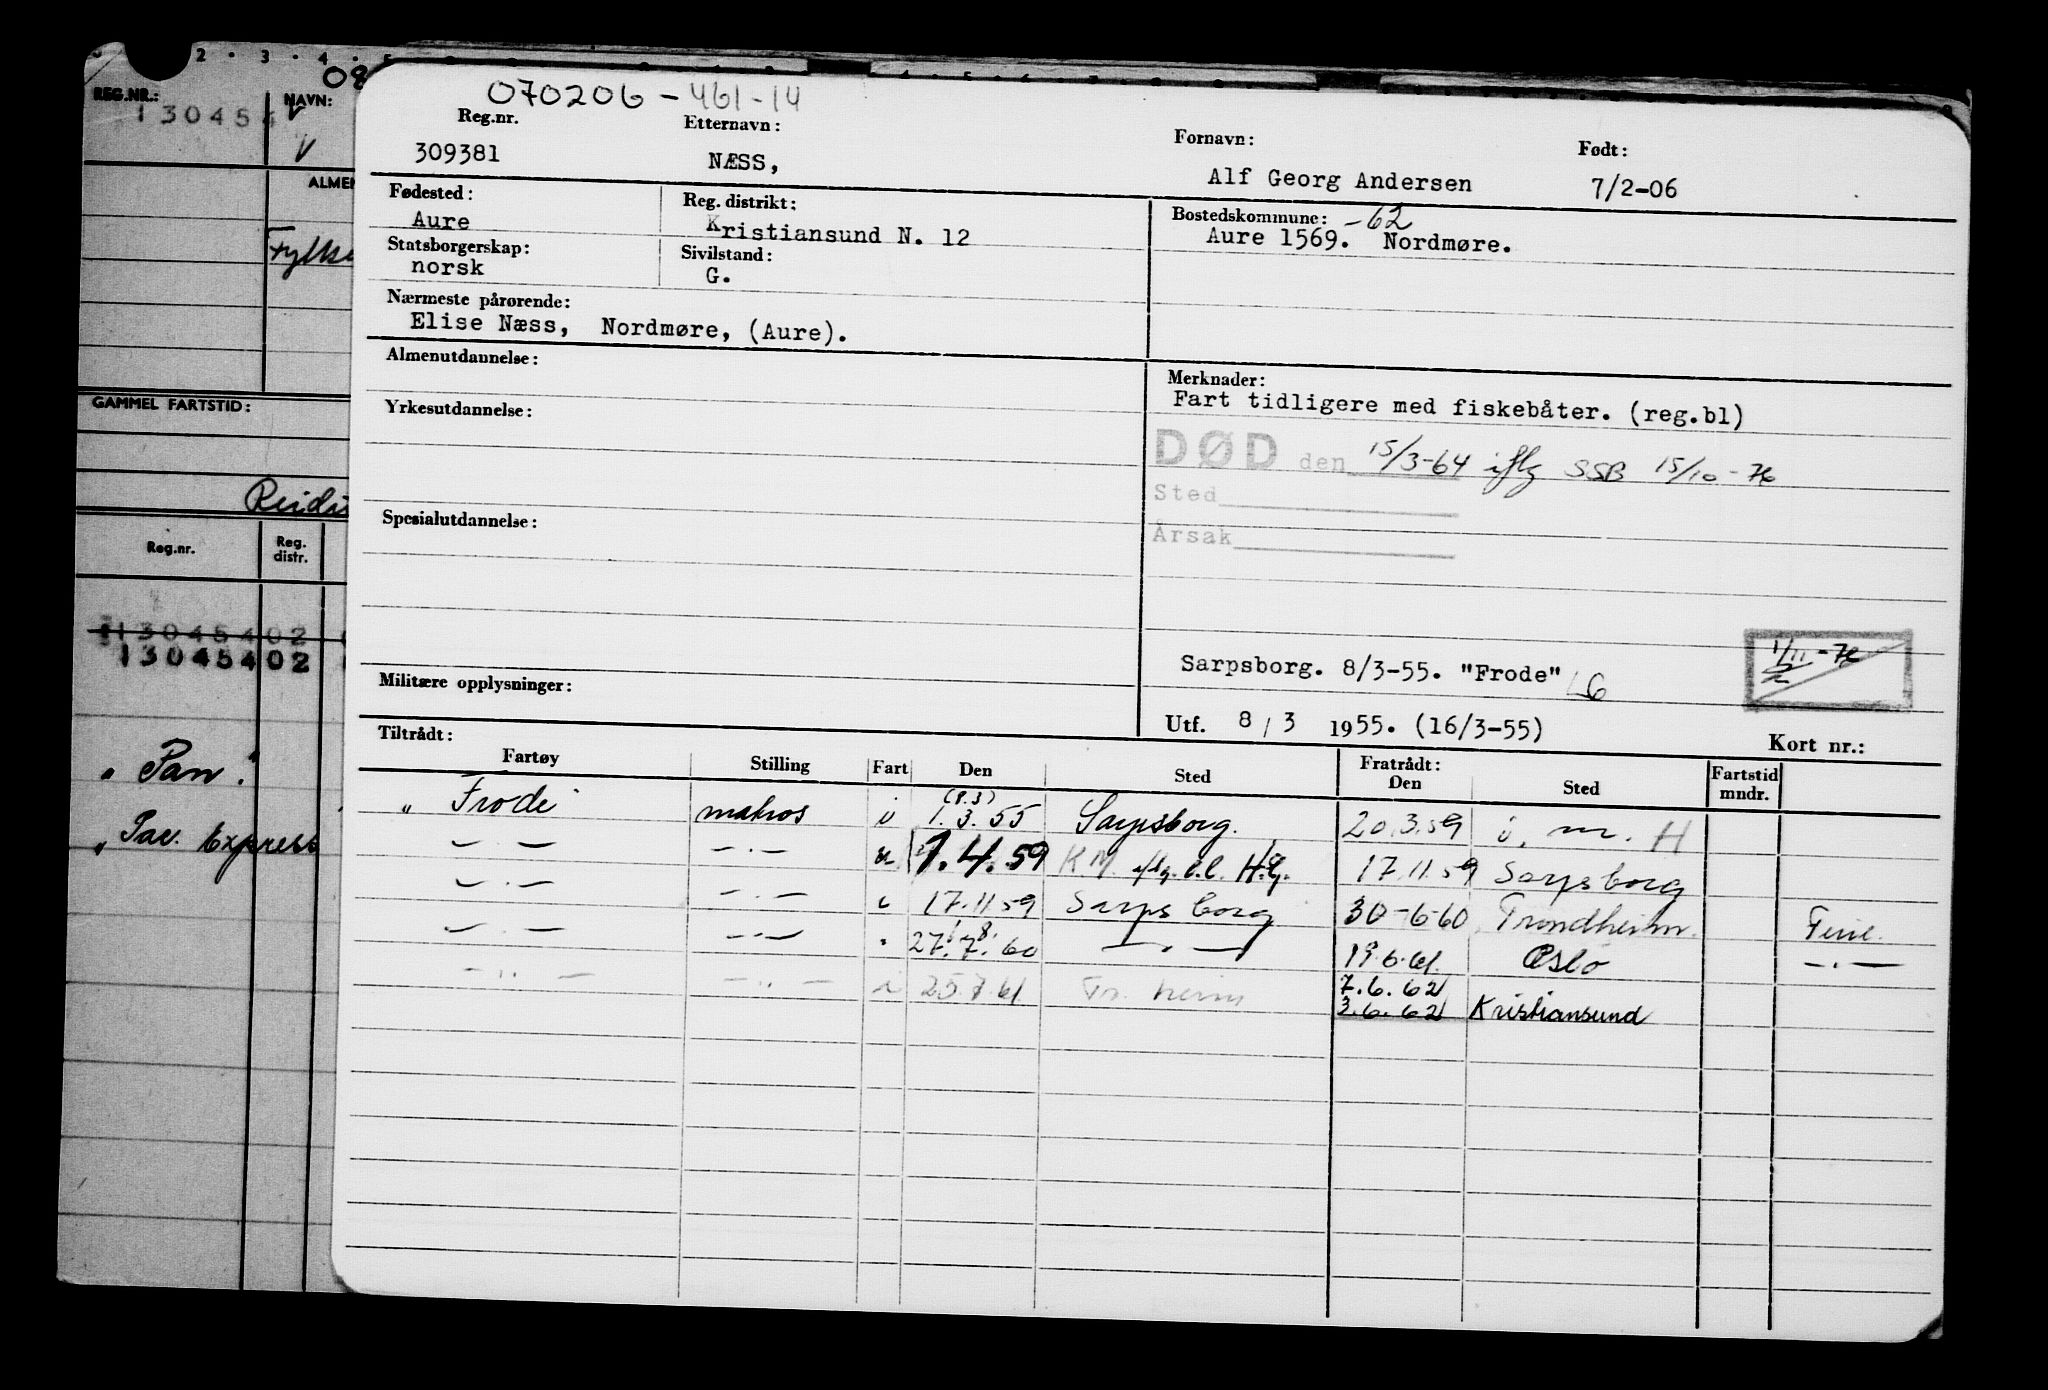 2 · 3 · 4 · 5
08
REG.NR.:
NAVN:
130454
V
V
ALMEN
Fylke
GAMMEL FARTSTID:
Reida
Reg.nr.
Reg. distr.
13045402
13045402
" Pan "
" Pav. Express
070206 - 461-14
Reg.nr. Etternavn: Fornavn: Født:
309381 NÆSS, Alf Georg Andersen 7/2-06
Fødested: Reg. distrikt: Bostedskommune: -62
Aure Kristiansund N. 12 Aure 1569. Nordmøre.
Statsborgerskap: Sivilstand:
norsk G.
Nærmeste pårørende:
Elise Næss, Nordmøre, (Aure).
Almenutdannelse: Merknader:
Fart tidligere med fiskebåter. (reg.bl)
Yrkesutdannelse:
DØD den 15/3-64 iflg SSB 15/10-76
Sted
Spesialutdannelse:
Årsak
1/11-76
Sarpsborg. 8/3-55. "Frode" LG
Militære opplysninger:
Utf. 8 / 3 1955. (16/3-55) Kort nr.:
Tiltrådt: Fratrådt:
Fartøy Stilling Fart Den Sted Den Sted Fartstid mndr.
" Frode" matros i (8.3) 1.3.55 Sarpsborg. 20.3.59 i. m. H
— . — — . — u 1.4.59 K.M. iflg. b.l. H.G. 17.11.59 Sarpsborg
— . — — . — i 17.11.59 Sarpsborg 30-6-60 Trondheim. Ferie.
— . — — . — " 27.7.60 8. — . — 19.6.61. Oslo — . —
— " — — " — i 25.7.61 Tr. heim 7.6.62
3.6.62 Kristiansund